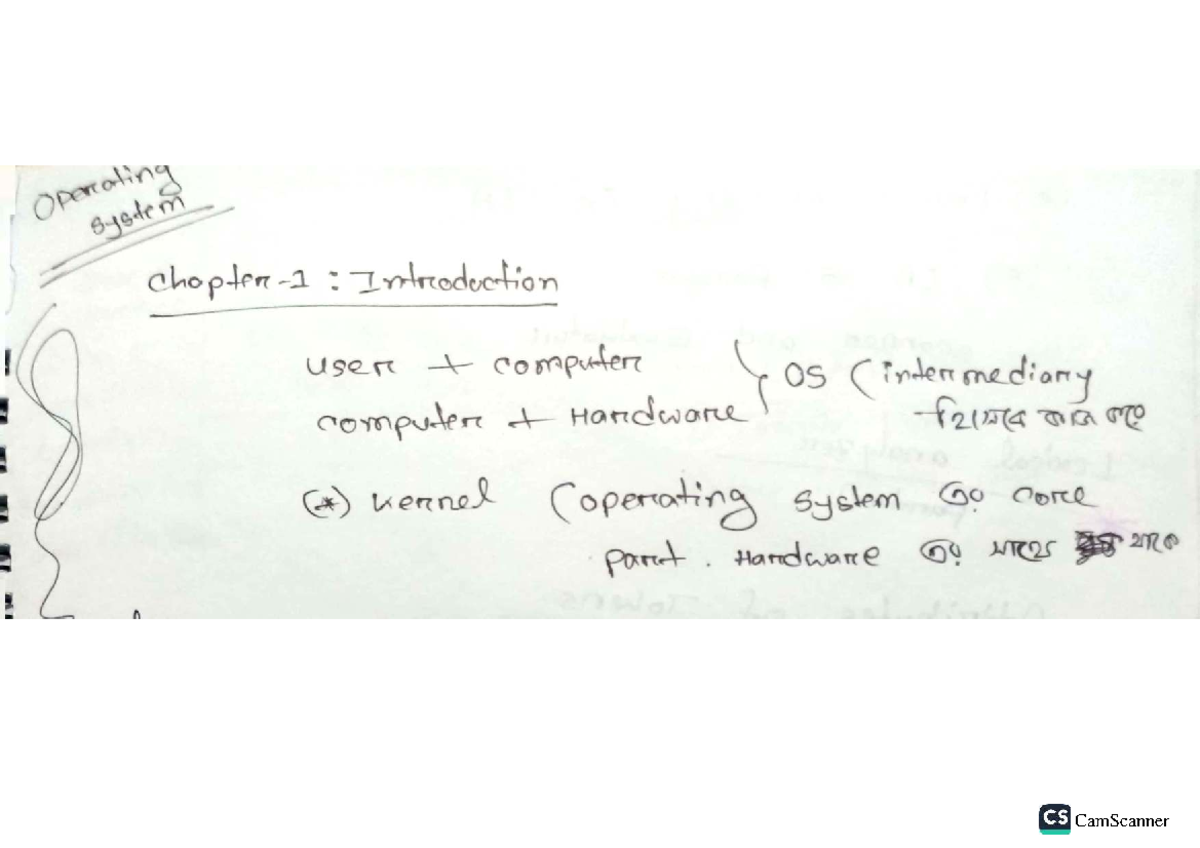 Operating
system
Chapter-1 : Introduction
user + computer } OS (intermediary
computer + Hardware হিসেবে কাজ করে
(*) Kernel (operating system এর core
part. Hardware এর সাথে থাকে
CS CamScanner